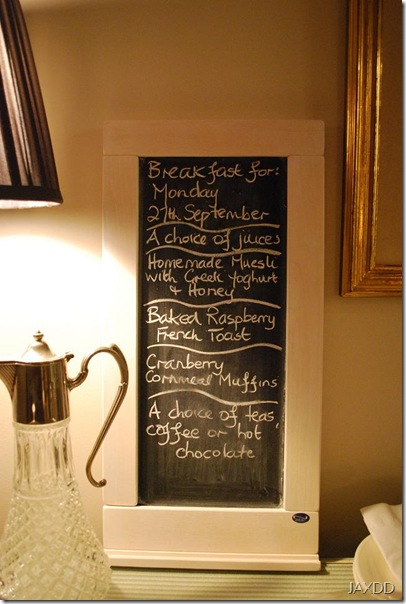 Breakfast for:
Monday
27th September
A choice of juices
Homemade Muesli
with Greek Yoghurt
& Honey
Baked Raspberry
French Toast
Cranberry
Cornmeal Muffins
A choice of teas,
coffee or hot
chocolate
JAYDD